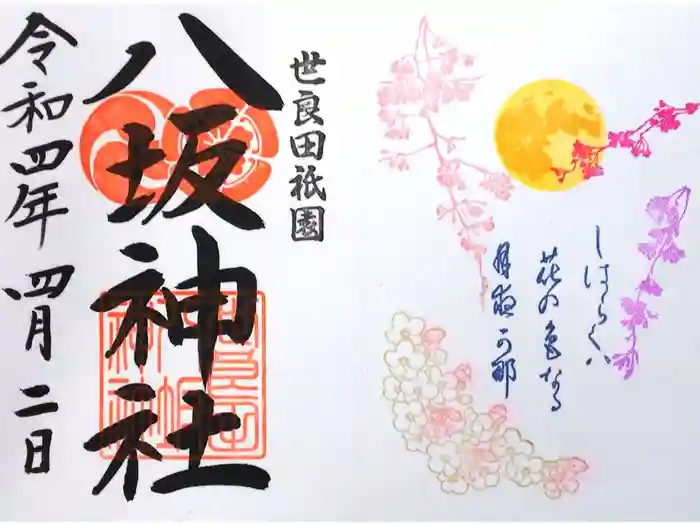 しはらくハ
花の色なる
月夜可那
世良田祇園
八坂神社
令和四年 四月 二日